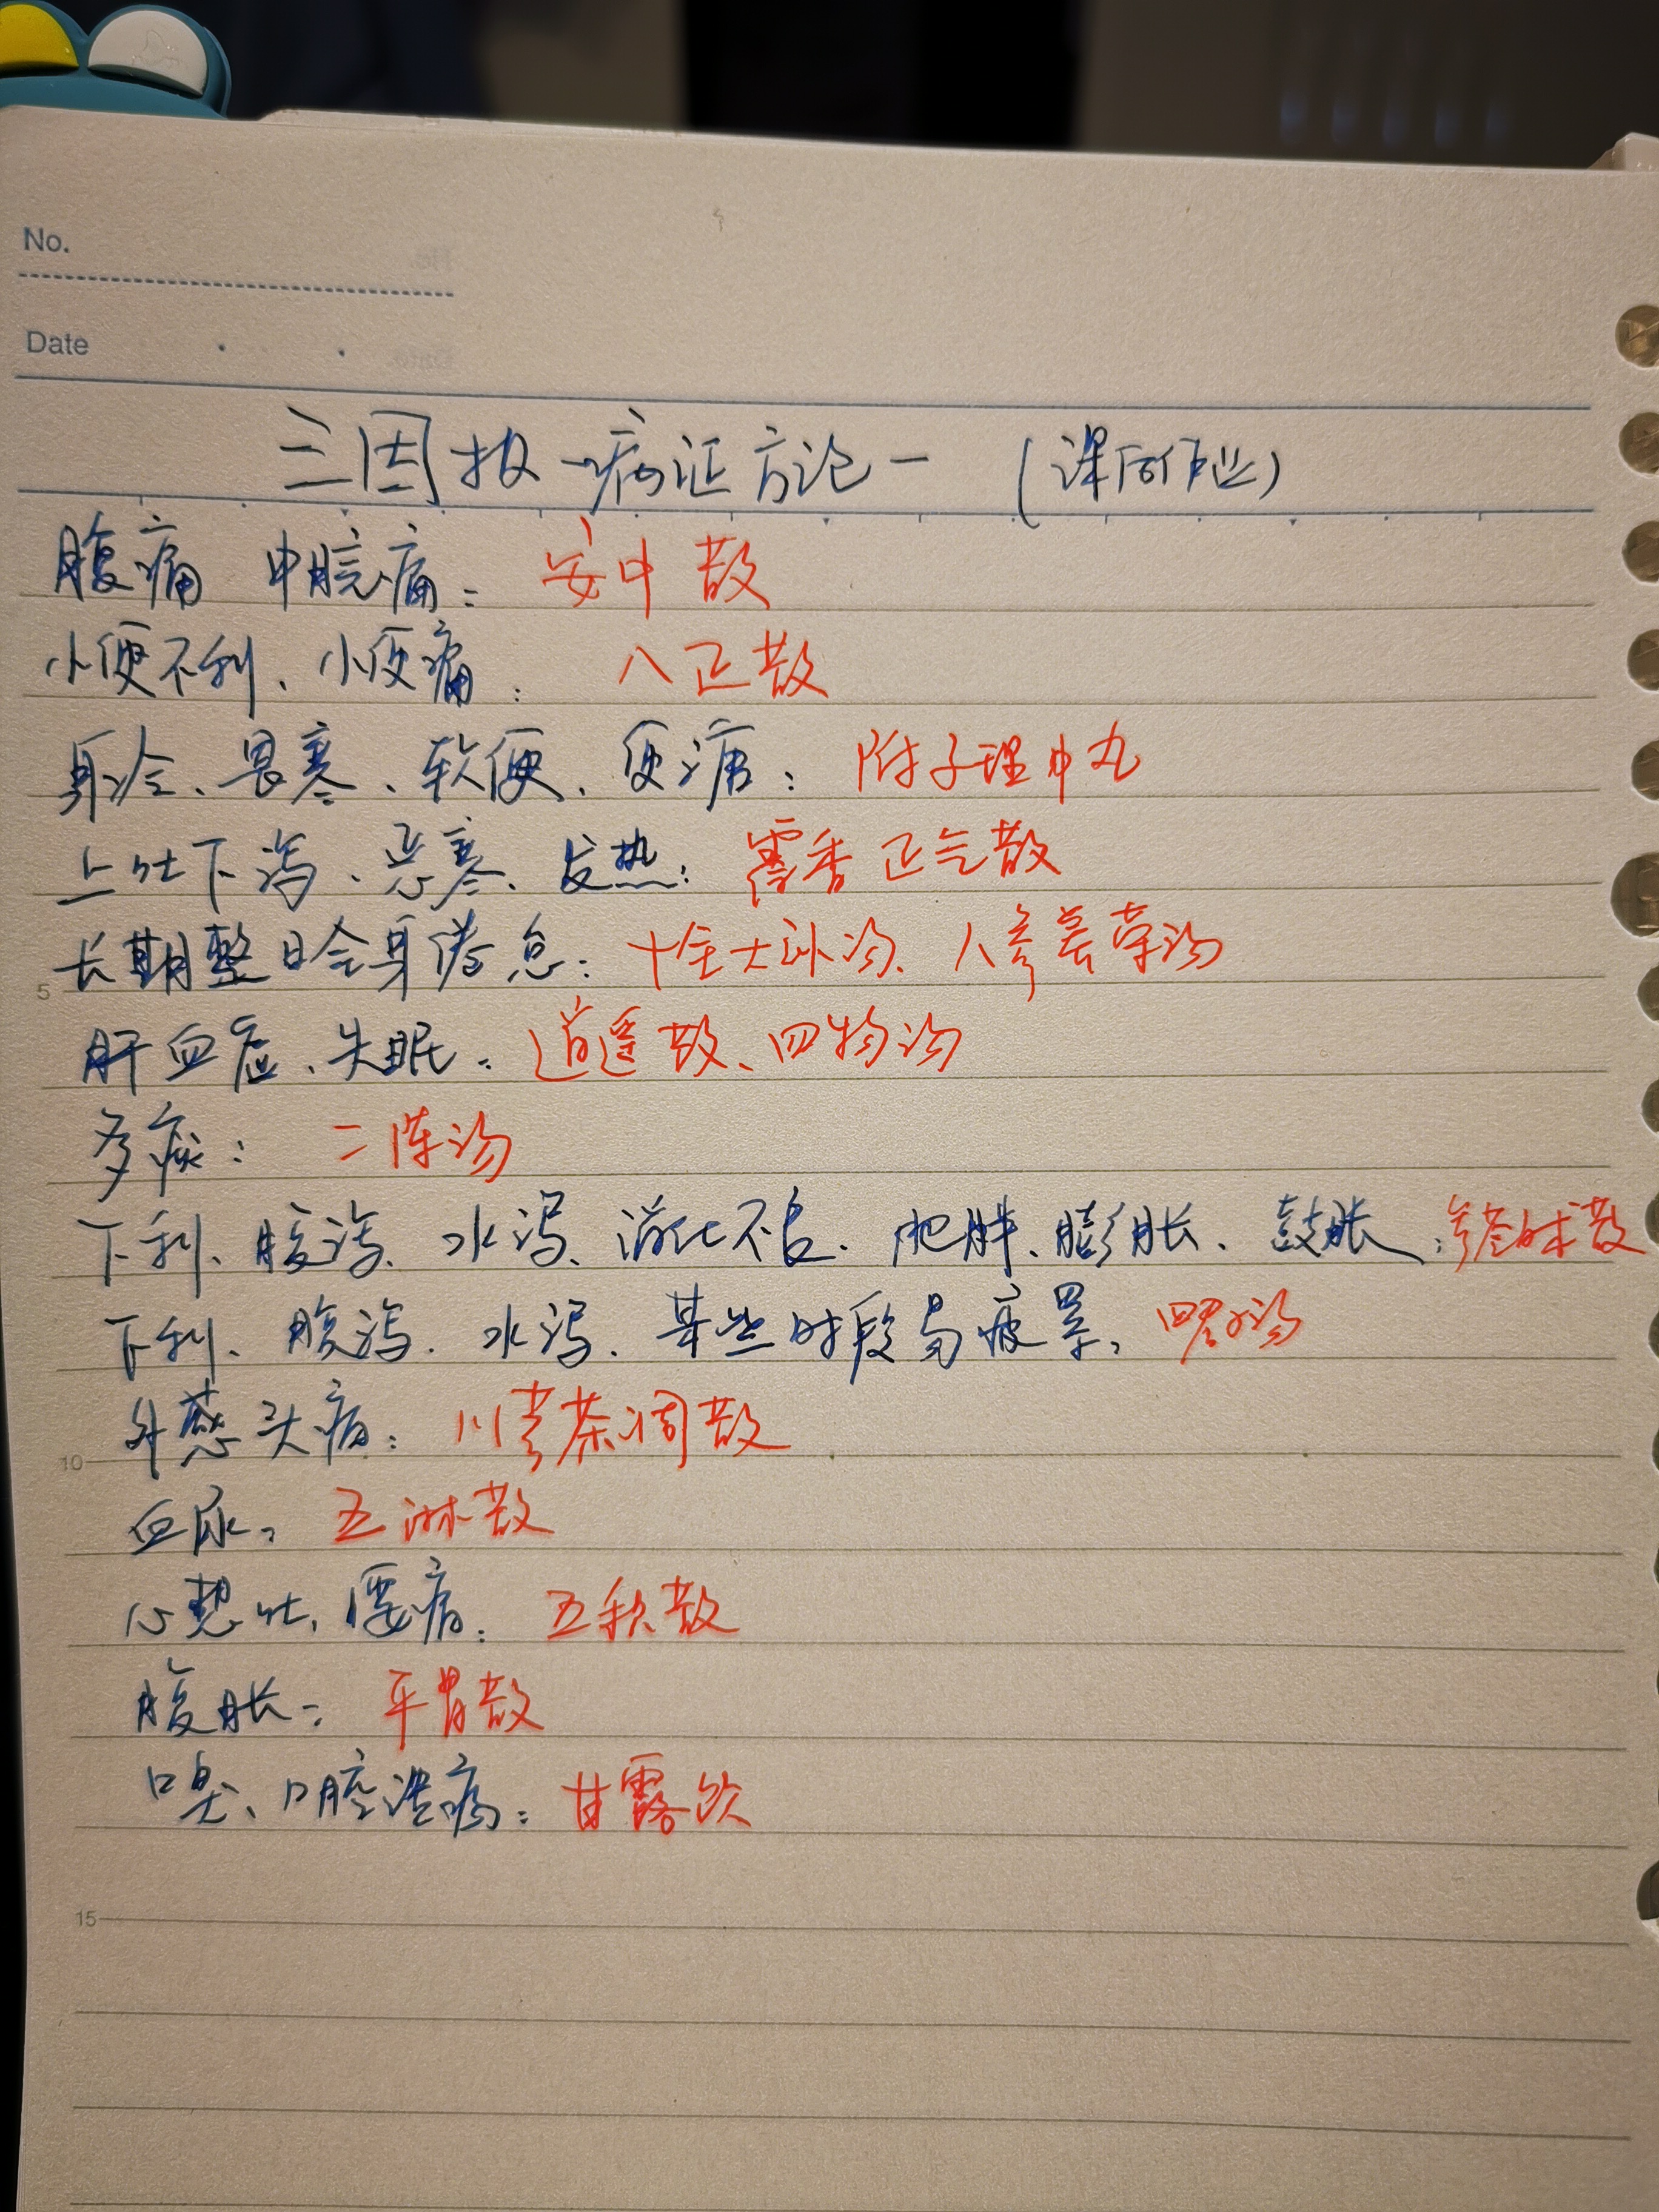 No.
Date
三因极一病证方论一 (课后作业)
腹痛 中脘痛: 安中散
小便不利、小便痛: 八正散
身冷、畏寒、软便、便溏: 附子理中丸
上吐下泻、恶寒、发热: 霍香正气散
长期整日全身倦怠: 十全大补汤、人参养荣汤
5
肝血虚、失眠: 逍遥散、四物汤
多痰: 二陈汤
下利、腹泻、水泻、消化不良、肥胖、膨胀、鼓胀: 参苓白术散
下利、腹泻、水泻、某些时段易疲累: 四君子汤
外感头痛: 川芎茶调散
10
血尿: 五淋散
心想吐、腰痛: 五积散
腹胀: 平胃散
口臭、口腔溃疡: 甘露饮
15